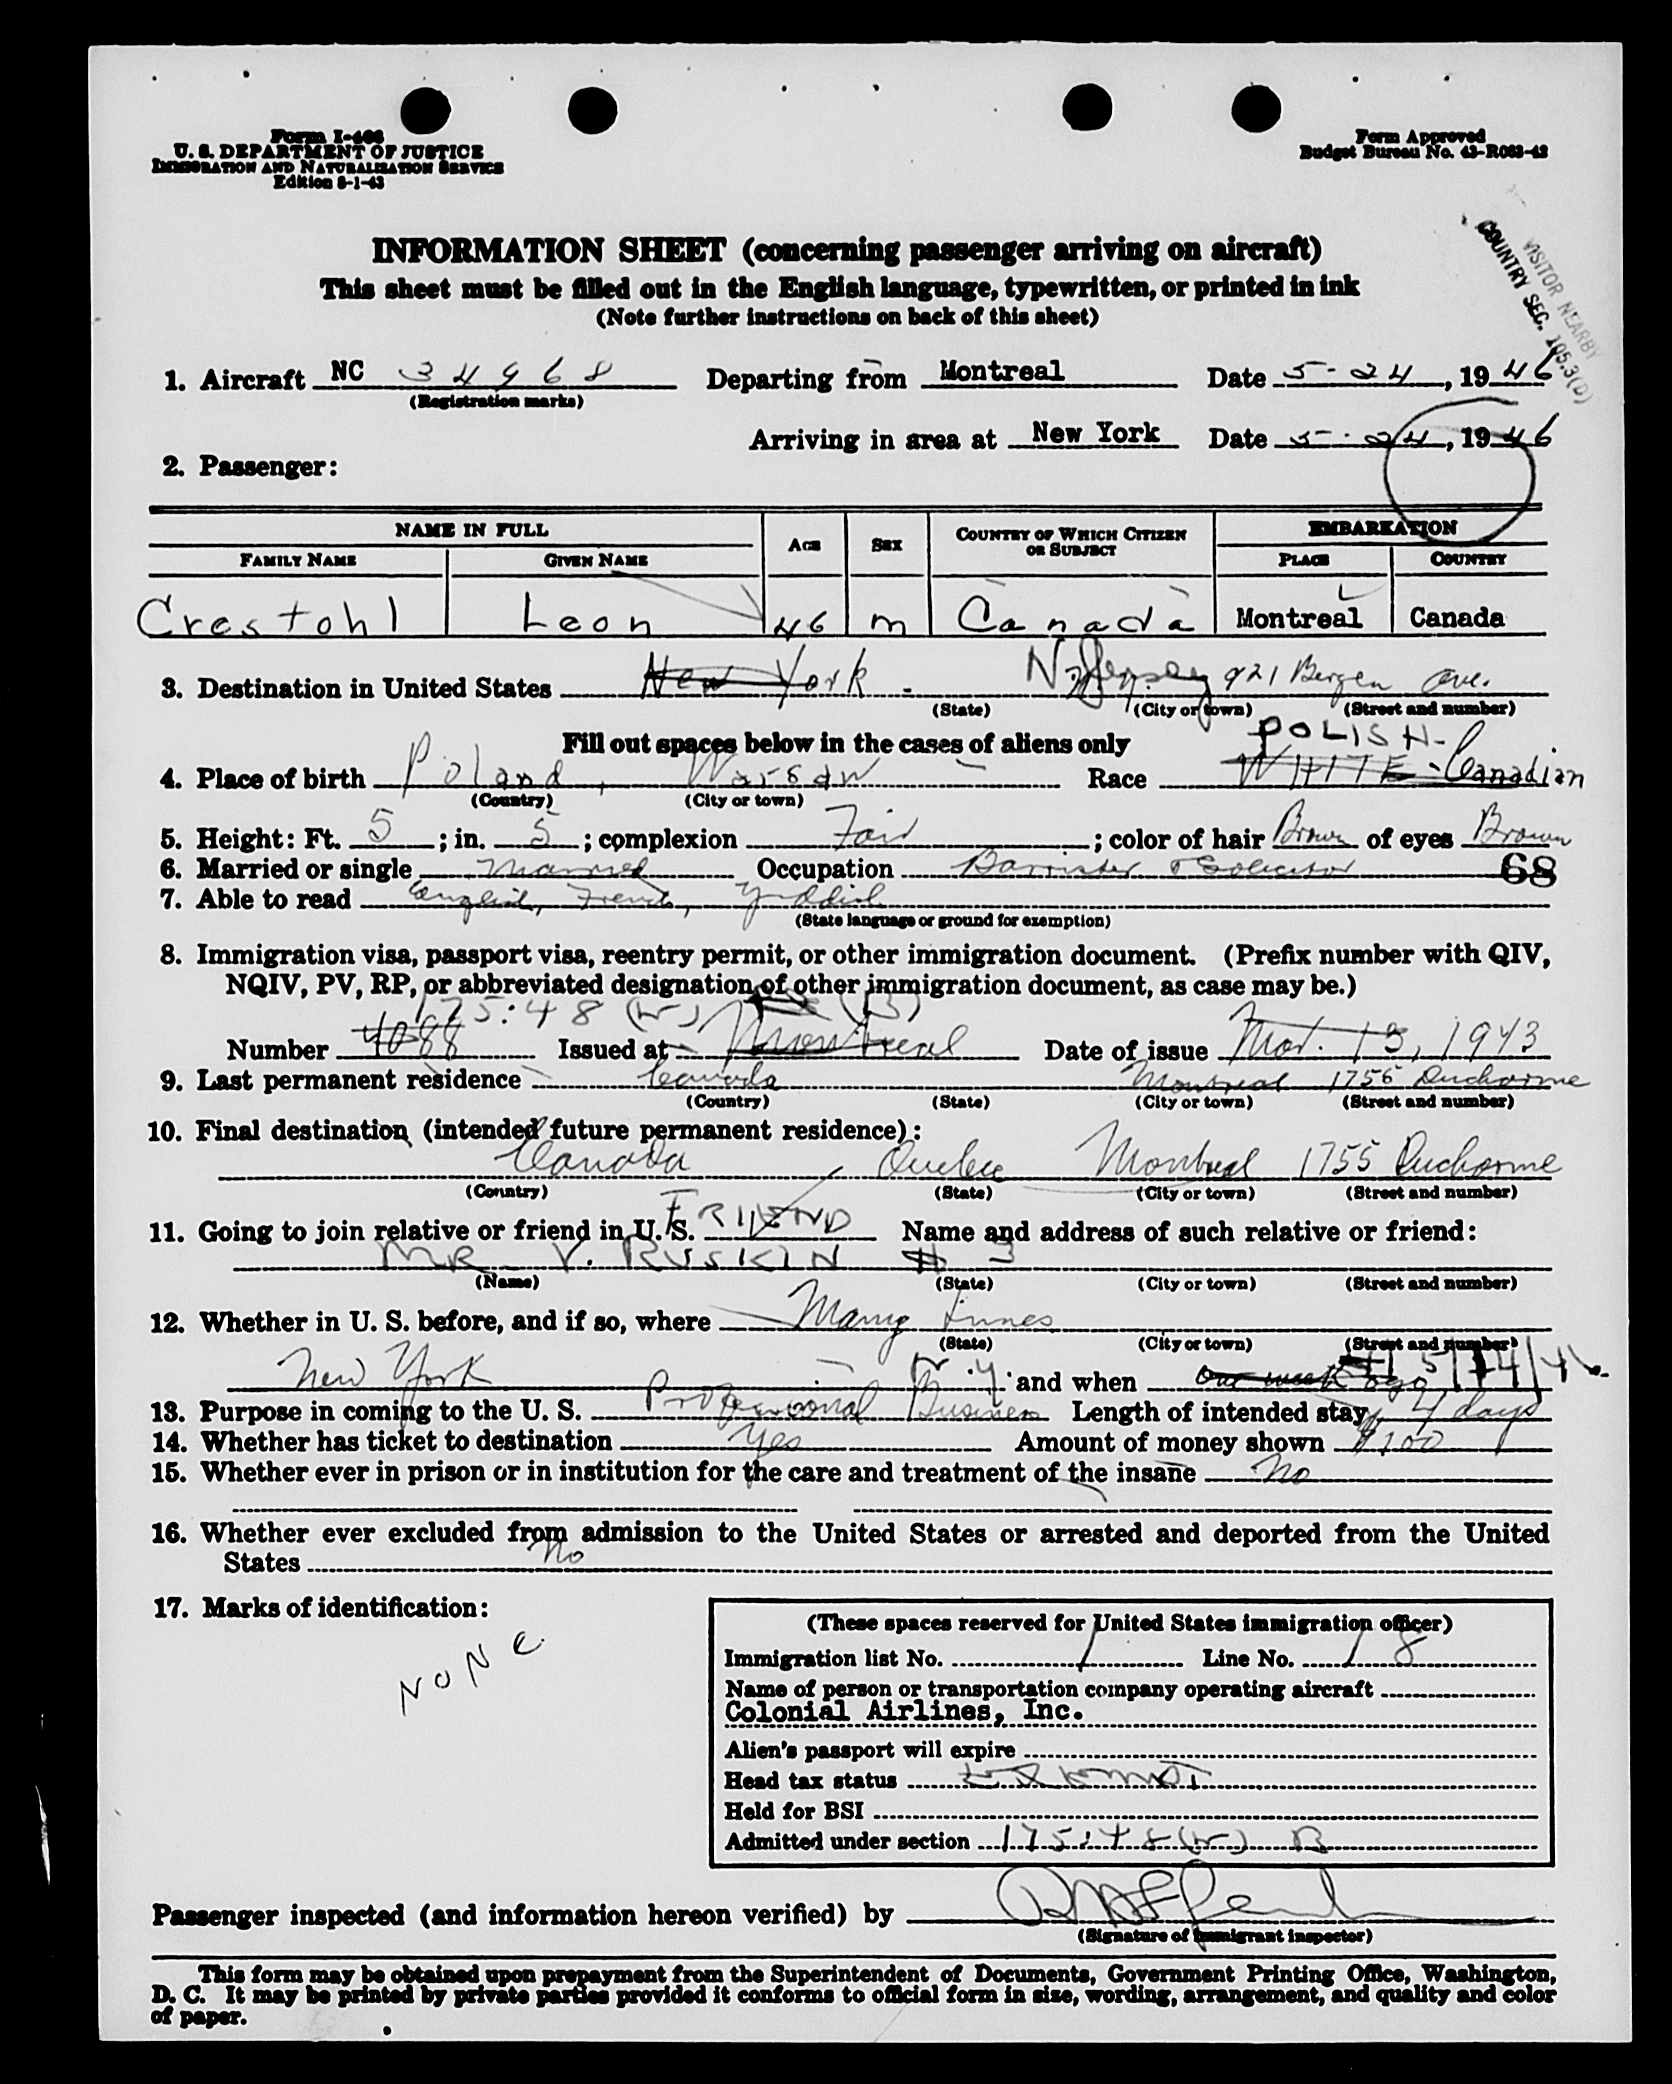 Form I-466
U. S. DEPARTMENT OF JUSTICE
IMMIGRATION AND NATURALIZATION SERVICE
Edition 8-1-43
Form Approved
Budget Bureau No. 43-R063-42
VISITOR NEARBY
COUNTRY SEC. 105.3(D)
INFORMATION SHEET (concerning passenger arriving on aircraft)
This sheet must be filled out in the English language, typewritten, or printed in ink
(Note further instructions on back of this sheet)
1. Aircraft NC 34968 Departing from Montreal Date 5-24, 1946
(Registration marks)
Arriving in area at New York Date 5-24, 1946
2. Passenger:
NAME IN FULL AGE SEX COUNTRY OF WHICH CITIZEN OR SUBJECT EMBARKATION
FAMILY NAME GIVEN NAME PLACE COUNTRY
Crestohl Leon 46 m Canada Montreal Canada
3. Destination in United States New York N. Jersey 921 Bergen Ave.
(State) (City or town) (Street and number)
Fill out spaces below in the cases of aliens only
POLISH-
4. Place of birth Poland, Warsaw Race WHITE-Canadian
(Country) (City or town)
5. Height: Ft. 5; in. 5; complexion Fair; color of hair Brown of eyes Brown
6. Married or single Married Occupation Barrister & Solicitor 68
7. Able to read English, French, Yiddish
(State language or ground for exemption)
8. Immigration visa, passport visa, reentry permit, or other immigration document. (Prefix number with QIV,
NQIV, PV, RP, or abbreviated designation of other immigration document, as case may be.)
175:48 (B)
Number 4088 Issued at Montreal Date of issue Mar. 13, 1943
9. Last permanent residence Canada Montreal 1755 Ducharme
(Country) (State) (City or town) (Street and number)
10. Final destination (intended future permanent residence):
Canada Quebec Montreal 1755 Ducharme
(Country) (State) (City or town) (Street and number)
11. Going to join relative or friend in U. S. FRIEND Name and address of such relative or friend:
MR V. RUSKIN # 3
(Name) (State) (City or town) (Street and number)
12. Whether in U. S. before, and if so, where Many times
(State) (City or town) (Street and number)
New York N.Y. and when One week ago 5/14/46.
13. Purpose in coming to the U. S. Professional Business Length of intended stay 4 days
14. Whether has ticket to destination Yes Amount of money shown $100
15. Whether ever in prison or in institution for the care and treatment of the insane No
16. Whether ever excluded from admission to the United States or arrested and deported from the United
States No
17. Marks of identification:
NONE.
(These spaces reserved for United States immigration officer)
Immigration list No. 1 Line No. 18
Name of person or transportation company operating aircraft
Colonial Airlines, Inc.
Alien's passport will expire
Head tax status EXEMPT
Held for BSI
Admitted under section 175:48 B
Passenger inspected (and information hereon verified) by
(Signature of immigrant inspector)
This form may be obtained upon prepayment from the Superintendent of Documents, Government Printing Office, Washington,
D. C. It may be printed by private parties provided it conforms to official form in size, wording, arrangement, and quality and color
of paper.